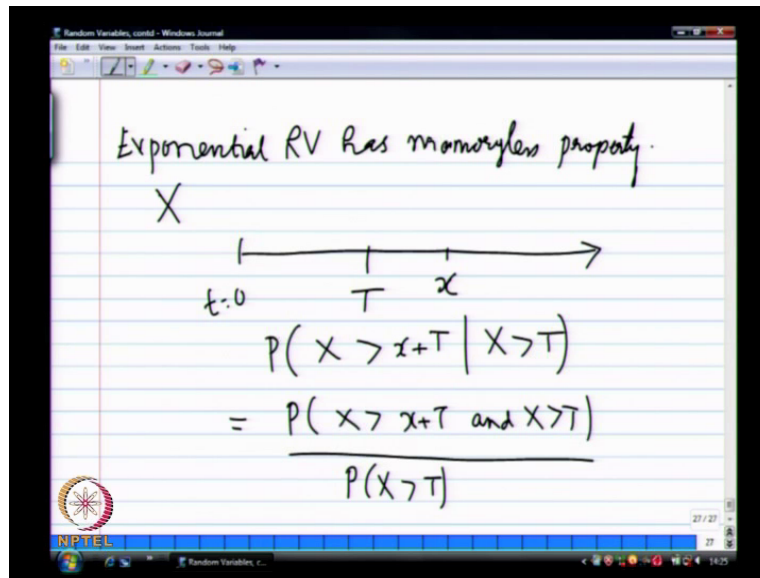 Random Variables, contd - Windows Journal
File Edit View Insert Actions Tools Help
Exponential RV has memoryless property.
X
t=0 T x
P( X > x+T | X>T)
= P( X > x+T and X>T)
P(X>T)
27 / 27
27
NPTEL
Random Variables, c...
14:25